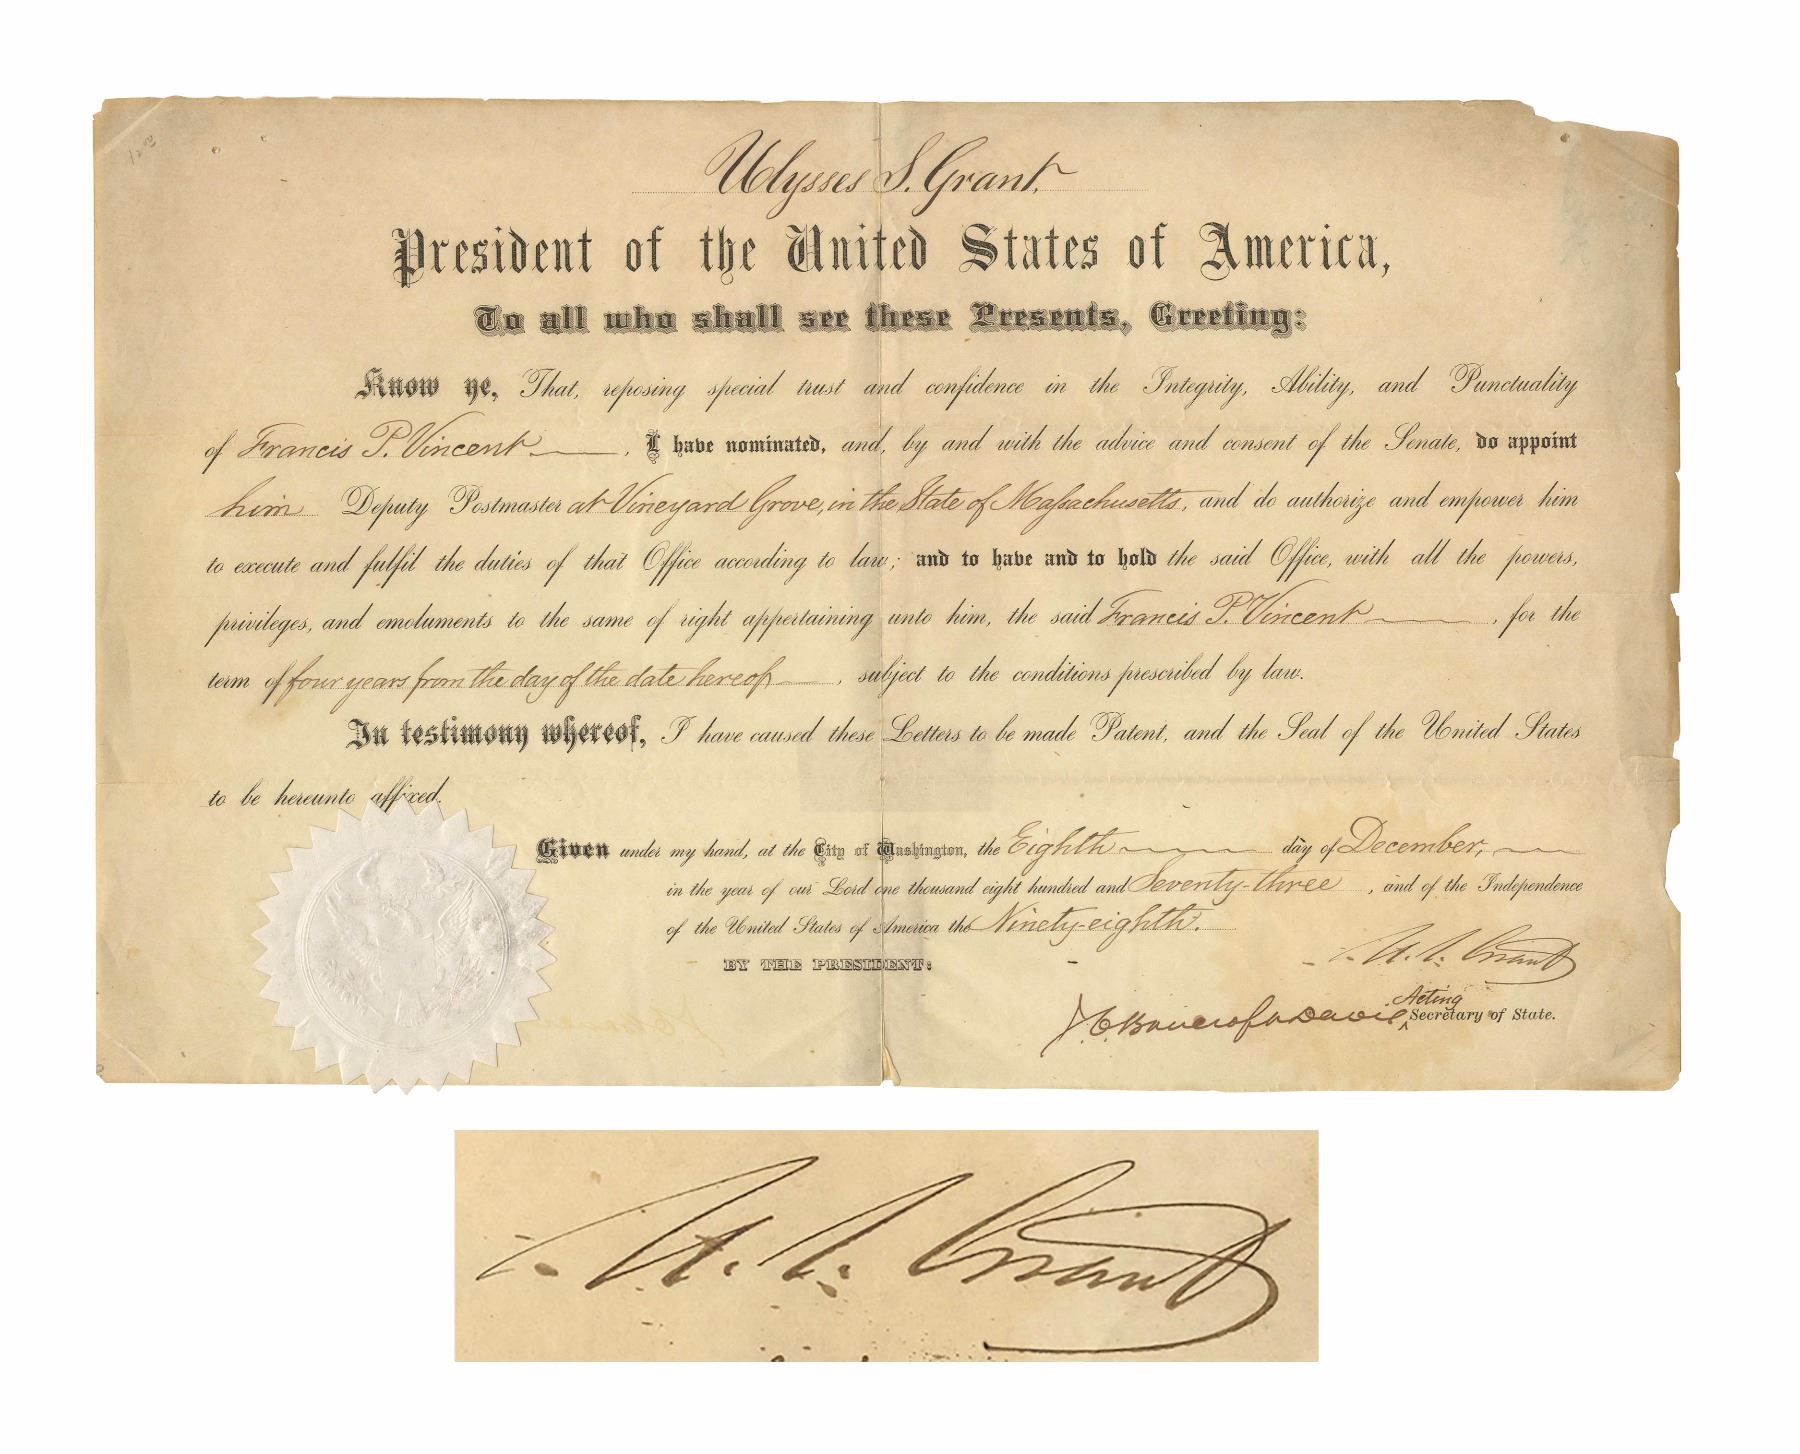 Ulysses S. Grant.
President of the United States of America,
To all who shall see these Presents, Greeting:
Know ye, That, reposing special trust and confidence in the Integrity, Ability, and Punctuality
of Francis P. Vincent, I have nominated, and, by and with the advice and consent of the Senate, do appoint
him Deputy Postmaster at Vineyard Grove, in the State of Massachusetts, and do authorize and empower him
to execute and fulfil the duties of that Office according to law; and to have and to hold the said Office, with all the powers,
privileges, and emoluments to the same of right appertaining unto him, the said Francis P. Vincent, for the
term of four years from the day of the date hereof, subject to the conditions prescribed by law.
In testimony whereof, I have caused these Letters to be made Patent, and the Seal of the United States
to be hereunto affixed.
Given under my hand, at the City of Washington, the Eighth day of December,
in the year of our Lord one thousand eight hundred and Seventy-three, and of the Independence
of the United States of America the Ninety-eighth.
BY THE PRESIDENT:
U. S. Grant
J. C. Bancroft Davis Acting Secretary of State.
U. S. Grant